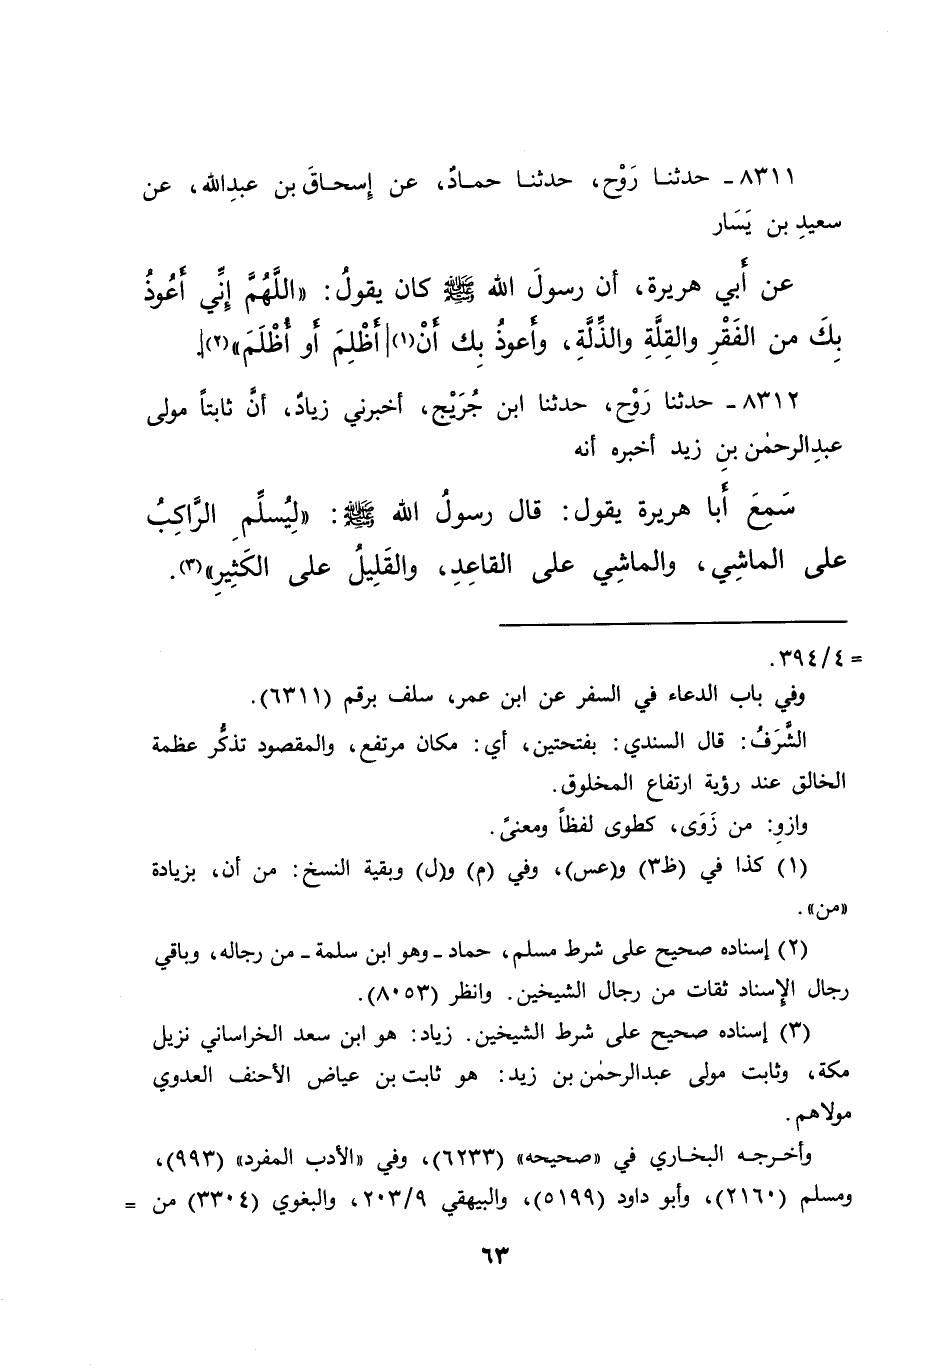 ٨٣١١ ـ حدثنـا رَوْح، حدثنـا حمـادٌ، عن إسحـاقَ بن عبدِالله، عن
سعيدِ بن يَسَار
عن أَبي هريرة، أن رسولَ الله ﷺ كان يقولُ: «اللَّهُمَّ إِنِّي أَعُوذُ
بِكَ من الفَقْرِ والقِلَّةِ والذِّلَّةِ، وأَعوذُ بِك أَنْ(١) أَظْلِمَ أَو أُظْلَمَ»(٢).
٨٣١٢ ـ حدثنا رَوْح، حدثنا ابن جُرَيْج، أخبرني زيادٌ، أنَّ ثابتاً مولى
عبدِالرحمٰن بنِ زيد أخبره أنه
سَمِعَ أَبا هريرة يقول: قال رسولُ الله ﷺ: «لِيُسلِّمِ الرَّاكِبُ
على الماشِي، والماشِي على القاعِدِ، والقَلِيلُ على الكَثِيرِ»(٣).
= ٣٩٤/٤.
وفي باب الدعاء في السفر عن ابن عمر، سلف برقم (٦٣١١).
الشَّرَفُ: قال السندي: بفتحتين، أي: مكان مرتفع، والمقصود تذكُّر عظمة
الخالق عند رؤية ارتفاع المخلوق.
وازوِ: من زَوَى، كطوى لفظاً ومعنىً.
(١) كذا في (ظ٣) و(عس)، وفي (م) و(ل) وبقية النسخ: من أن، بزيادة
«من».
(٢) إسناده صحيح على شرط مسلم، حماد ـ وهو ابن سلمة ـ من رجاله، وباقي
رجال الإسناد ثقات من رجال الشيخين. وانظر (٨٠٥٣).
(٣) إسناده صحيح على شرط الشيخين. زياد: هو ابن سعد الخراساني نزيل
مكة، وثابت مولى عبدالرحمٰن بن زيد: هو ثابت بن عياض الأحنف العدوي
مولاهم.
وأخـرجـه البخـاري في «صحيحه» (٦٢٣٣)، وفي «الأدب المفرد» (٩٩٣)،
ومسلم (٢١٦٠)، وأبو داود (٥١٩٩)، والبيهقي ٢٠٣/٩، والبغوي (٣٣٠٤) من =
٦٣